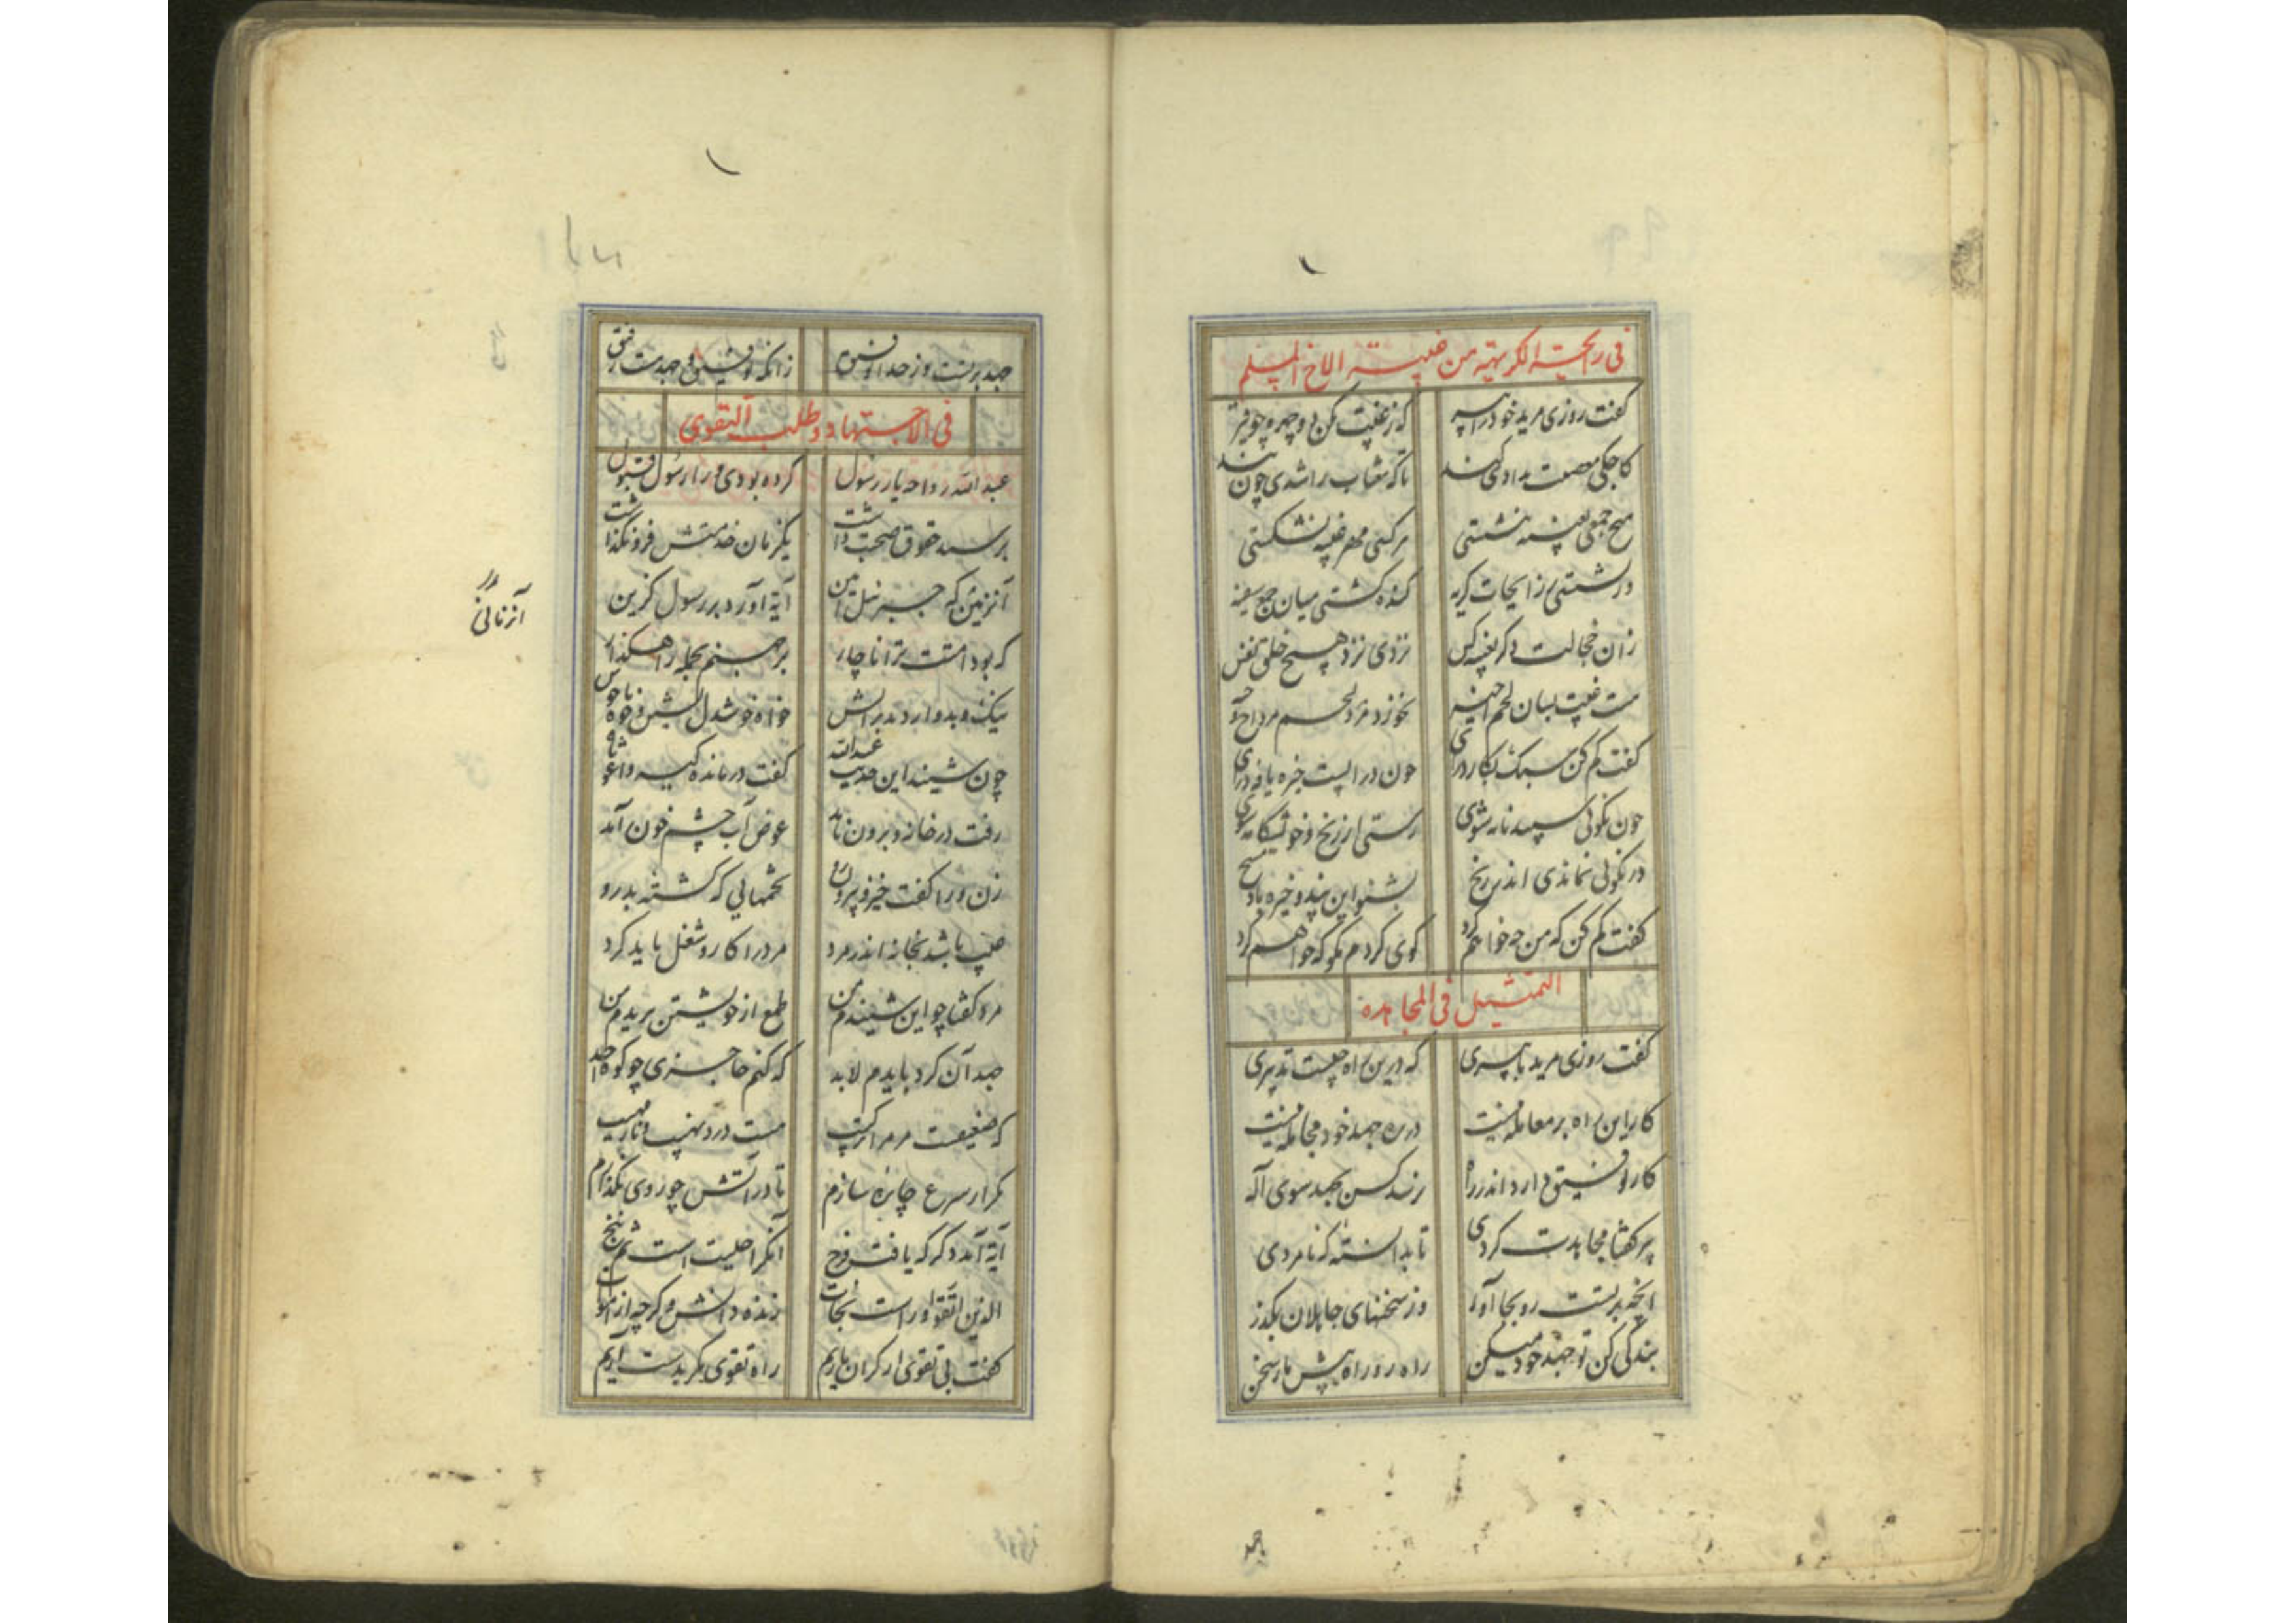 فی رایحة الکریهة من غیبة الاخ المسلم
گفت روزی مرید خود را پیر که ز غیبت مکن دو چهره چو قیر
کاجکی معصیت بدادی گند تا که مغتاب را شدی چون بند
هیچ جمعی بغیبه ننشستی هر کسی مهر غیبه نشکستی
ور نشستی ز رایحات کریه گنده گشتی میان جمع سفیه
زان خجالت دگر بغیبه کس نزدی نزد هیچ خلق نفس
هست غیبت بسان لحم اخیه نخورد مرد لحم مرد
گفت کم کن سبک بکار درآی چون درآیست خیره یافه درای
چون نکوئی سپید نامه شوی رستی از رنج و خویشکامه شوی
در نکوئی نماندی اندر رنج بشنو این پند و خیره باد مسنج
گفت کم کن که من چه خواهم کرد گوی کردم مگو که خواهم کرد
التمثیل فی المجاهدة
گفت روزی مرید با پیری که درین راه چیست تدبیری
کار این راه بر معامله نیست در ره جهد خود مجامله نیست
کار توفیق دارد اندر راه نرسد کس بجهد سوی اله
پیر گفتا مجاهدت کردی تا بدانسته که نامردی
آنچه بر تست رو بجا آور وز سخنهای جاهلان بگذر
بندگی کن تو جهد خود میکن راه رو راه پیش ما رسخن
جهد
جهد بر تست و ز خدا توفیق زانکه توفیق و جهد هست رفیق
فی الاجتهاد و طلب التقوی
عبدالله رواحه یار رسول کرده بودی ورا رسول قبول
بر پیمبر حقوق صحبت داشت یکزمان خدمتش فرو نگذاشت
آنزمین که جبرئیل امین آیة آورد بر رسول گزین
آنزمانی
که بود امتت ترا ناچار بر جهنم بجمله راهگذار
نیک و بد وارد بد بر آتش خواه خوشدل نشین و خواه ناخوش
چون شنید این حدیث عبدالله گفت درمانده گیر واغوثاه
رفت در خانه و برون نامد عوض آب چشم خون آمد
زن ورا گفت خیز و بیرون رو تخمهائی که کشته بدرو
عیب باشد بخانه اندر مرد مرد را کار و شغل باید کرد
مرد گفتا چو این شنیدم من طمع از خویشتن بریدم من
جهد آن کرد بایدم لابد که کنم حاجزی چو کوه احد
که ضعیفست مر مرا ترکیب هست دردم نهیب و نار مهیب
مگر از شرع چاره سازم تا در آتش چو روی بگذارم
آیة آمد دگر که یافت فرج آنکرا حلیت است ثم ننج
الذین اتقوا وراست نجات زنده دانش و گرچه از اموات
گفت بی تقوی ار گران باریم راه تقوی مگر بدست آریم